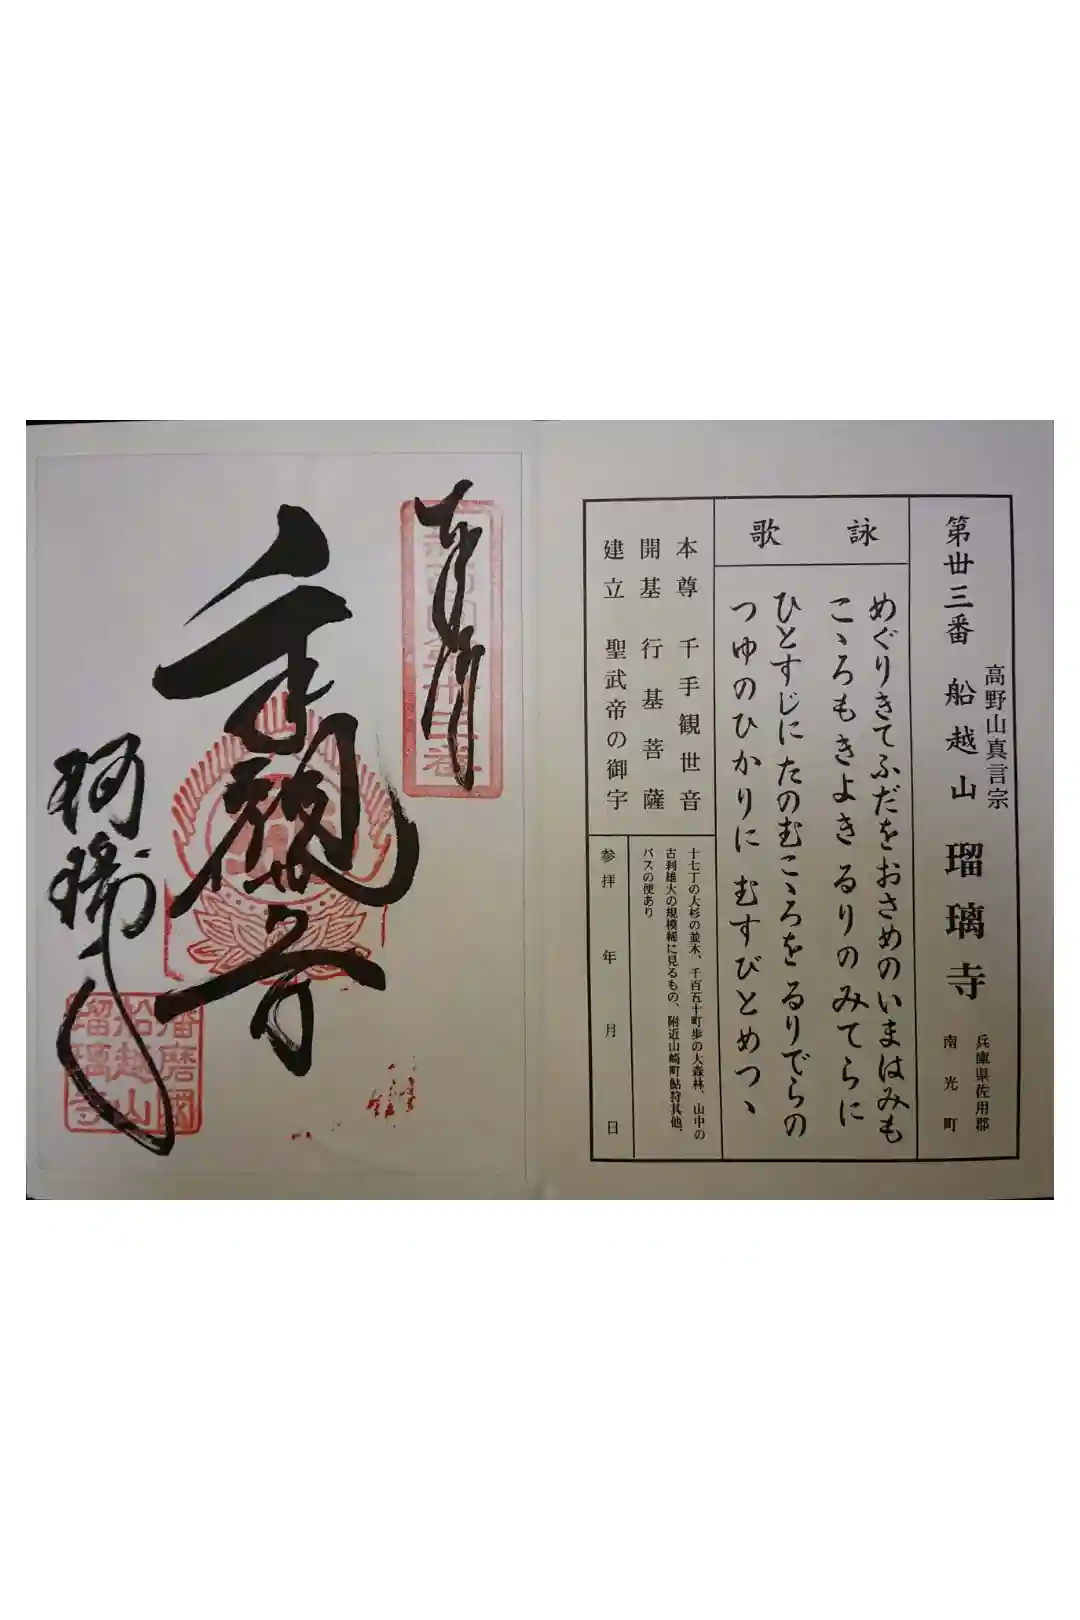 第丗三番 船越山 瑠璃寺
高野山真言宗
兵庫県佐用郡
南光町
詠歌
めぐりきてふだをおさめのいまはみも
こゝろもきよきるりのみてらに
ひとすじにたのむこゝろをるりでらの
つゆのひかりにむすびとめつゝ
本尊 千手観世音
開基 行基菩薩
建立 聖武帝の御宇
十七丁の大杉の並木、千百五十町歩の大森林、山中の
古刹雄大の規模稀に見るもの、附近山崎町鮎狩其他、
バスの便あり
参拝 年 月 日
奉拝
播磨國
船越山
瑠璃寺